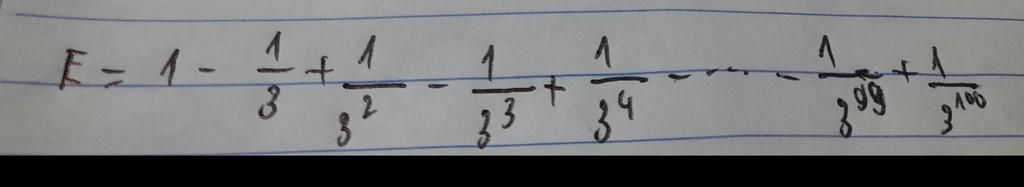 E = 1 - 1/3 + 1/3^2 - 1/3^3 + 1/3^4 - ... - 1/3^99 + 1/3^100